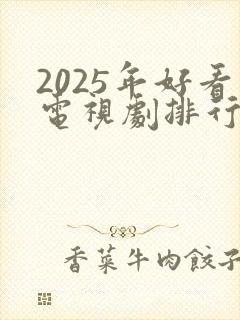 2025年好看
電視劇排行
香菜牛肉餃子